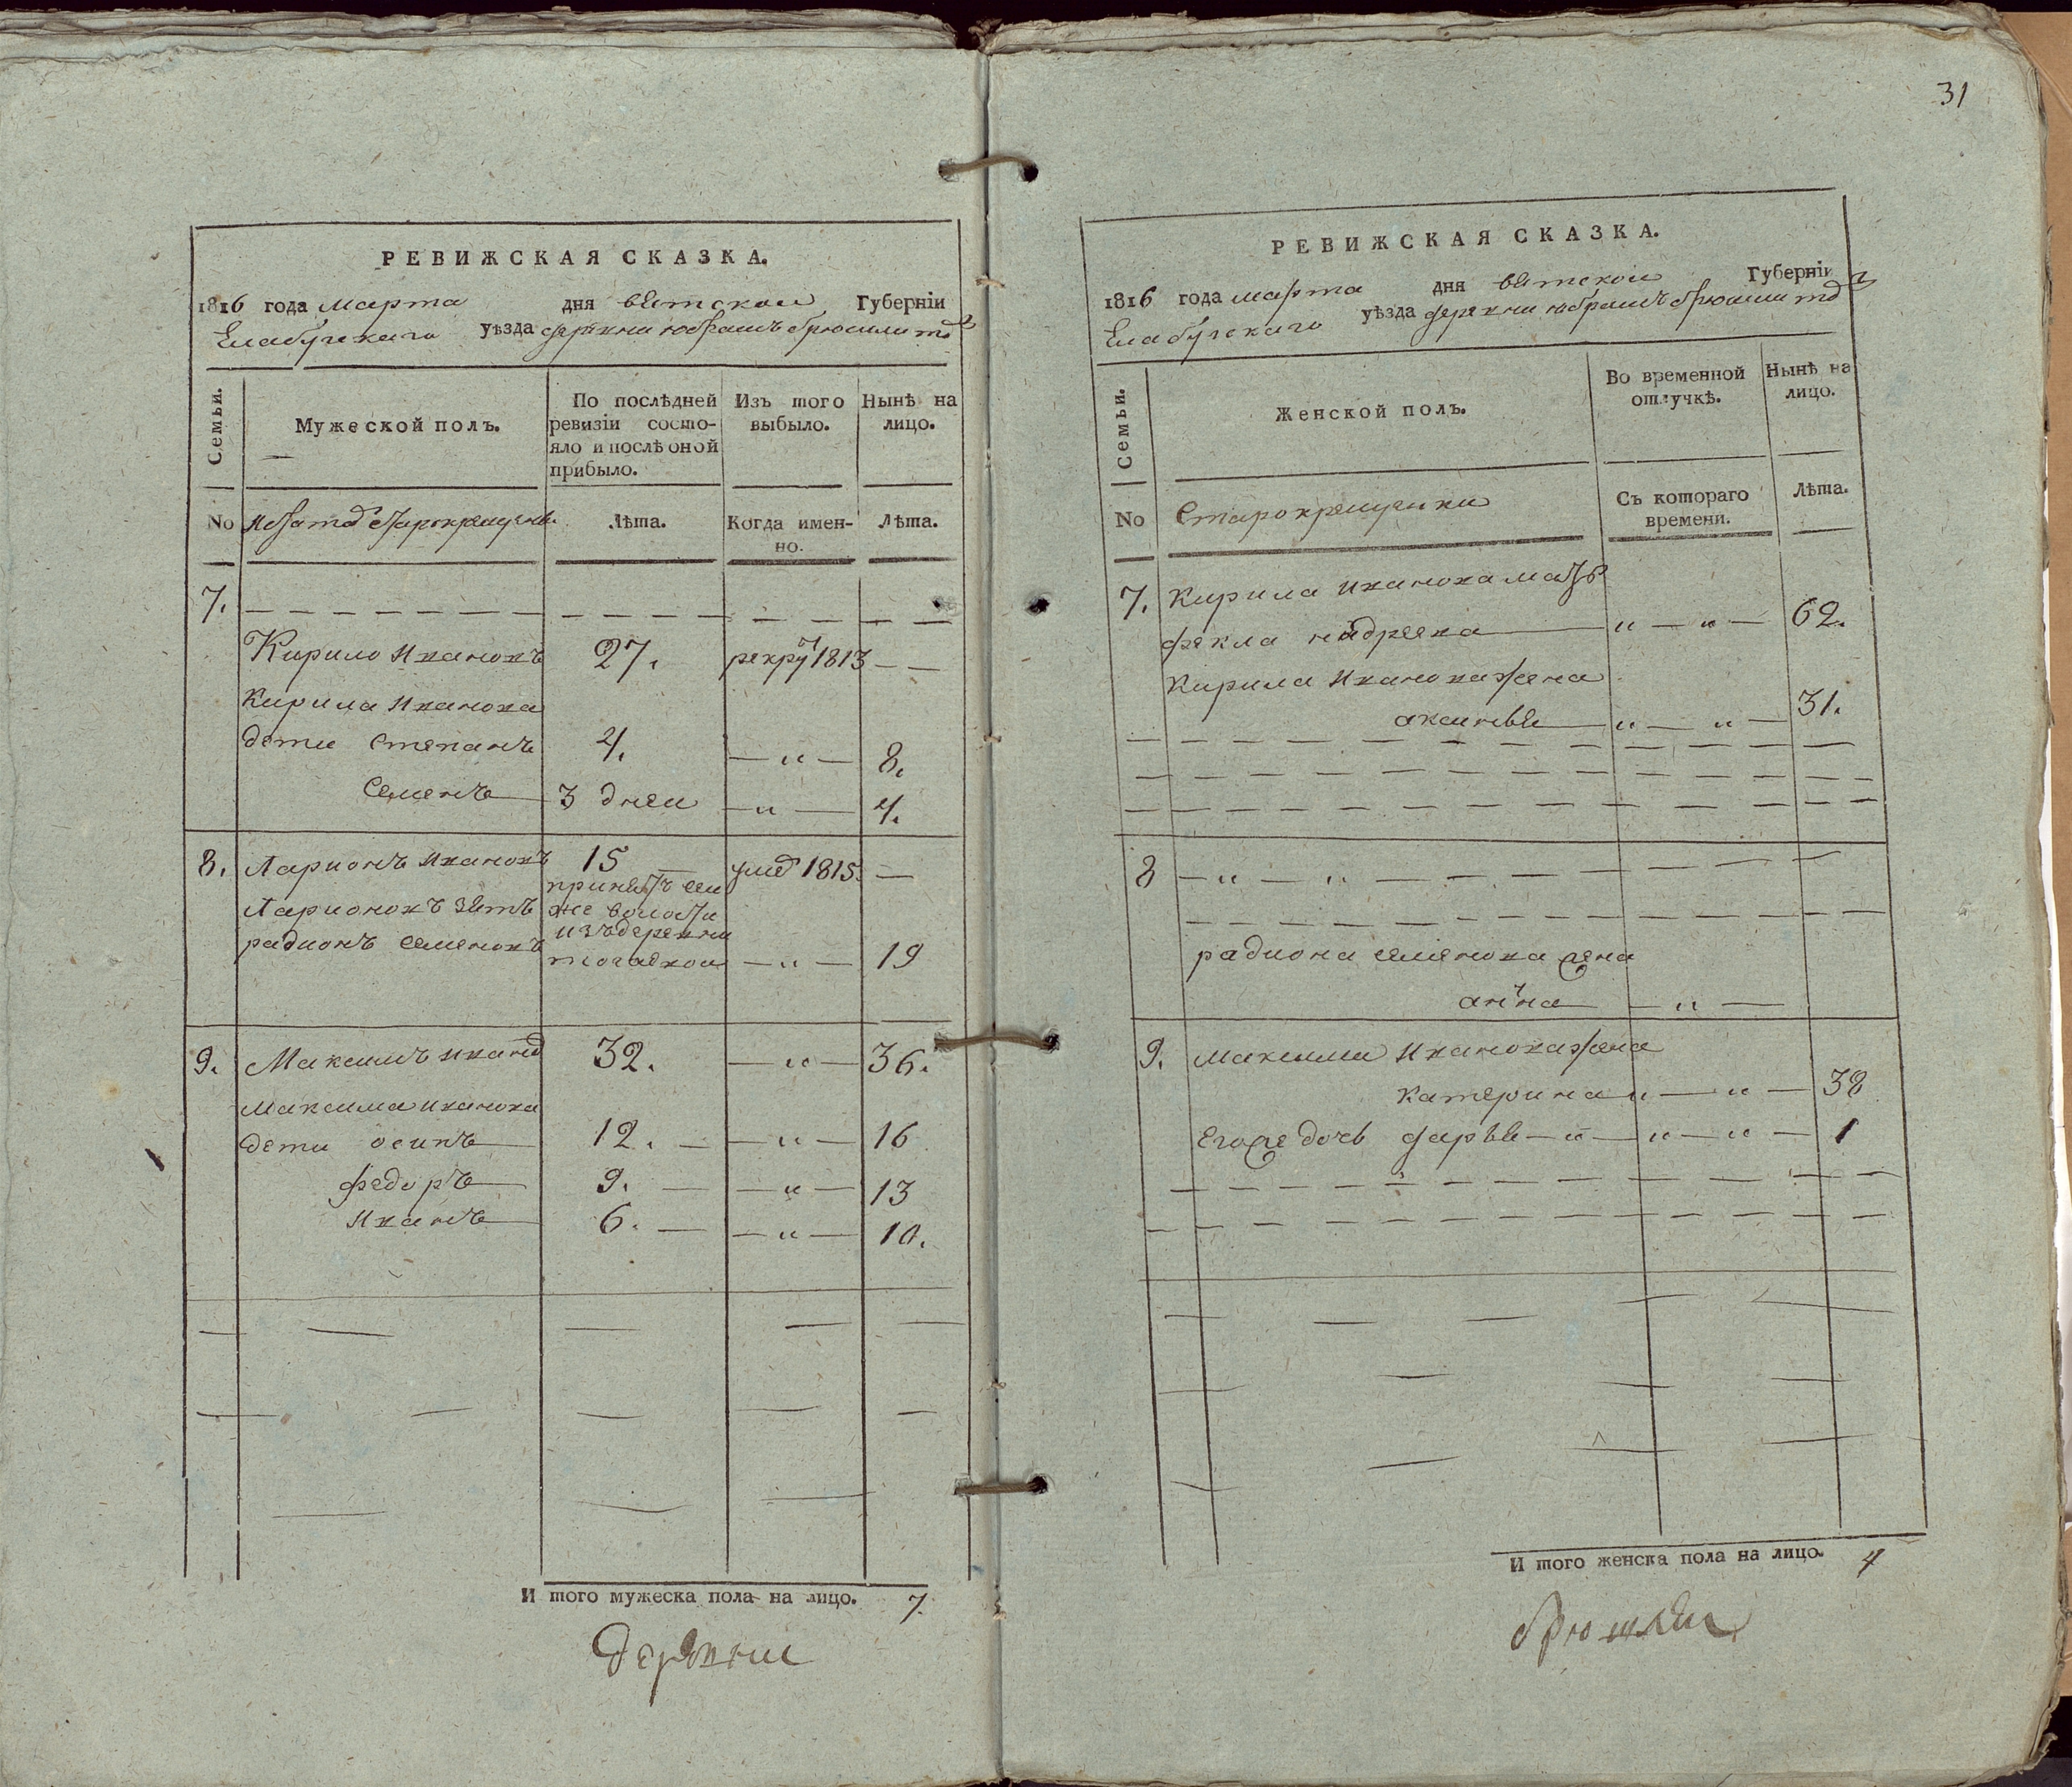 31
РЕВИЖСКАЯ СКАЗКА.
1816 года марта дня вятскои Губерніи
Елабугскаго уѣзда деревни юбрашъ брюшли тожъ
Семьи.
Мужеской полъ.
По послѣдней ревизіи состо-
яло и послѣ оной
прибыло.
Изъ того
выбыло.
Нынѣ на
лицо.
No старокрещены
Лѣта.
Когда имен-
но.
Лѣта.
7.
Кирило ивановъ 27. рекру 1813
Кирила иванова
дети степанъ 4. 8.
Семенъ 3 днеи 4.
8. Ларионъ ивановъ 15 умеръ 1815.
Ларионовъ зять
радионъ семеновъ
принятъ сеи
же волости
изъ деревни
19
9. Максимъ иванов 32. 36.
максима иванова
дети осипъ 12. 16
федоръ 9. 13
иванъ 6. 10.
И того мужеска пола на лицо. 7.
Деревни
РЕВИЖСКАЯ СКАЗКА.
1816 года марта дня вятскои Губерніи
Елабугскаго уѣзда деревни юбрашъ брюшли тожъ
Семьи.
Женской полъ.
Во временной
отлучкѣ.
Нынѣ на
лицо.
No Старокрещенки
Съ котораго
времени.
Лѣта.
7. Кирила иванова мать
фекла андреева 62.
Кирила иванова жена
аксинья 31.
8
радиона семенова жена
анна
9. максима иванова жена
катерина 38
его же дочь дарья 1
И того женска пола на лицо. 4
брюшли